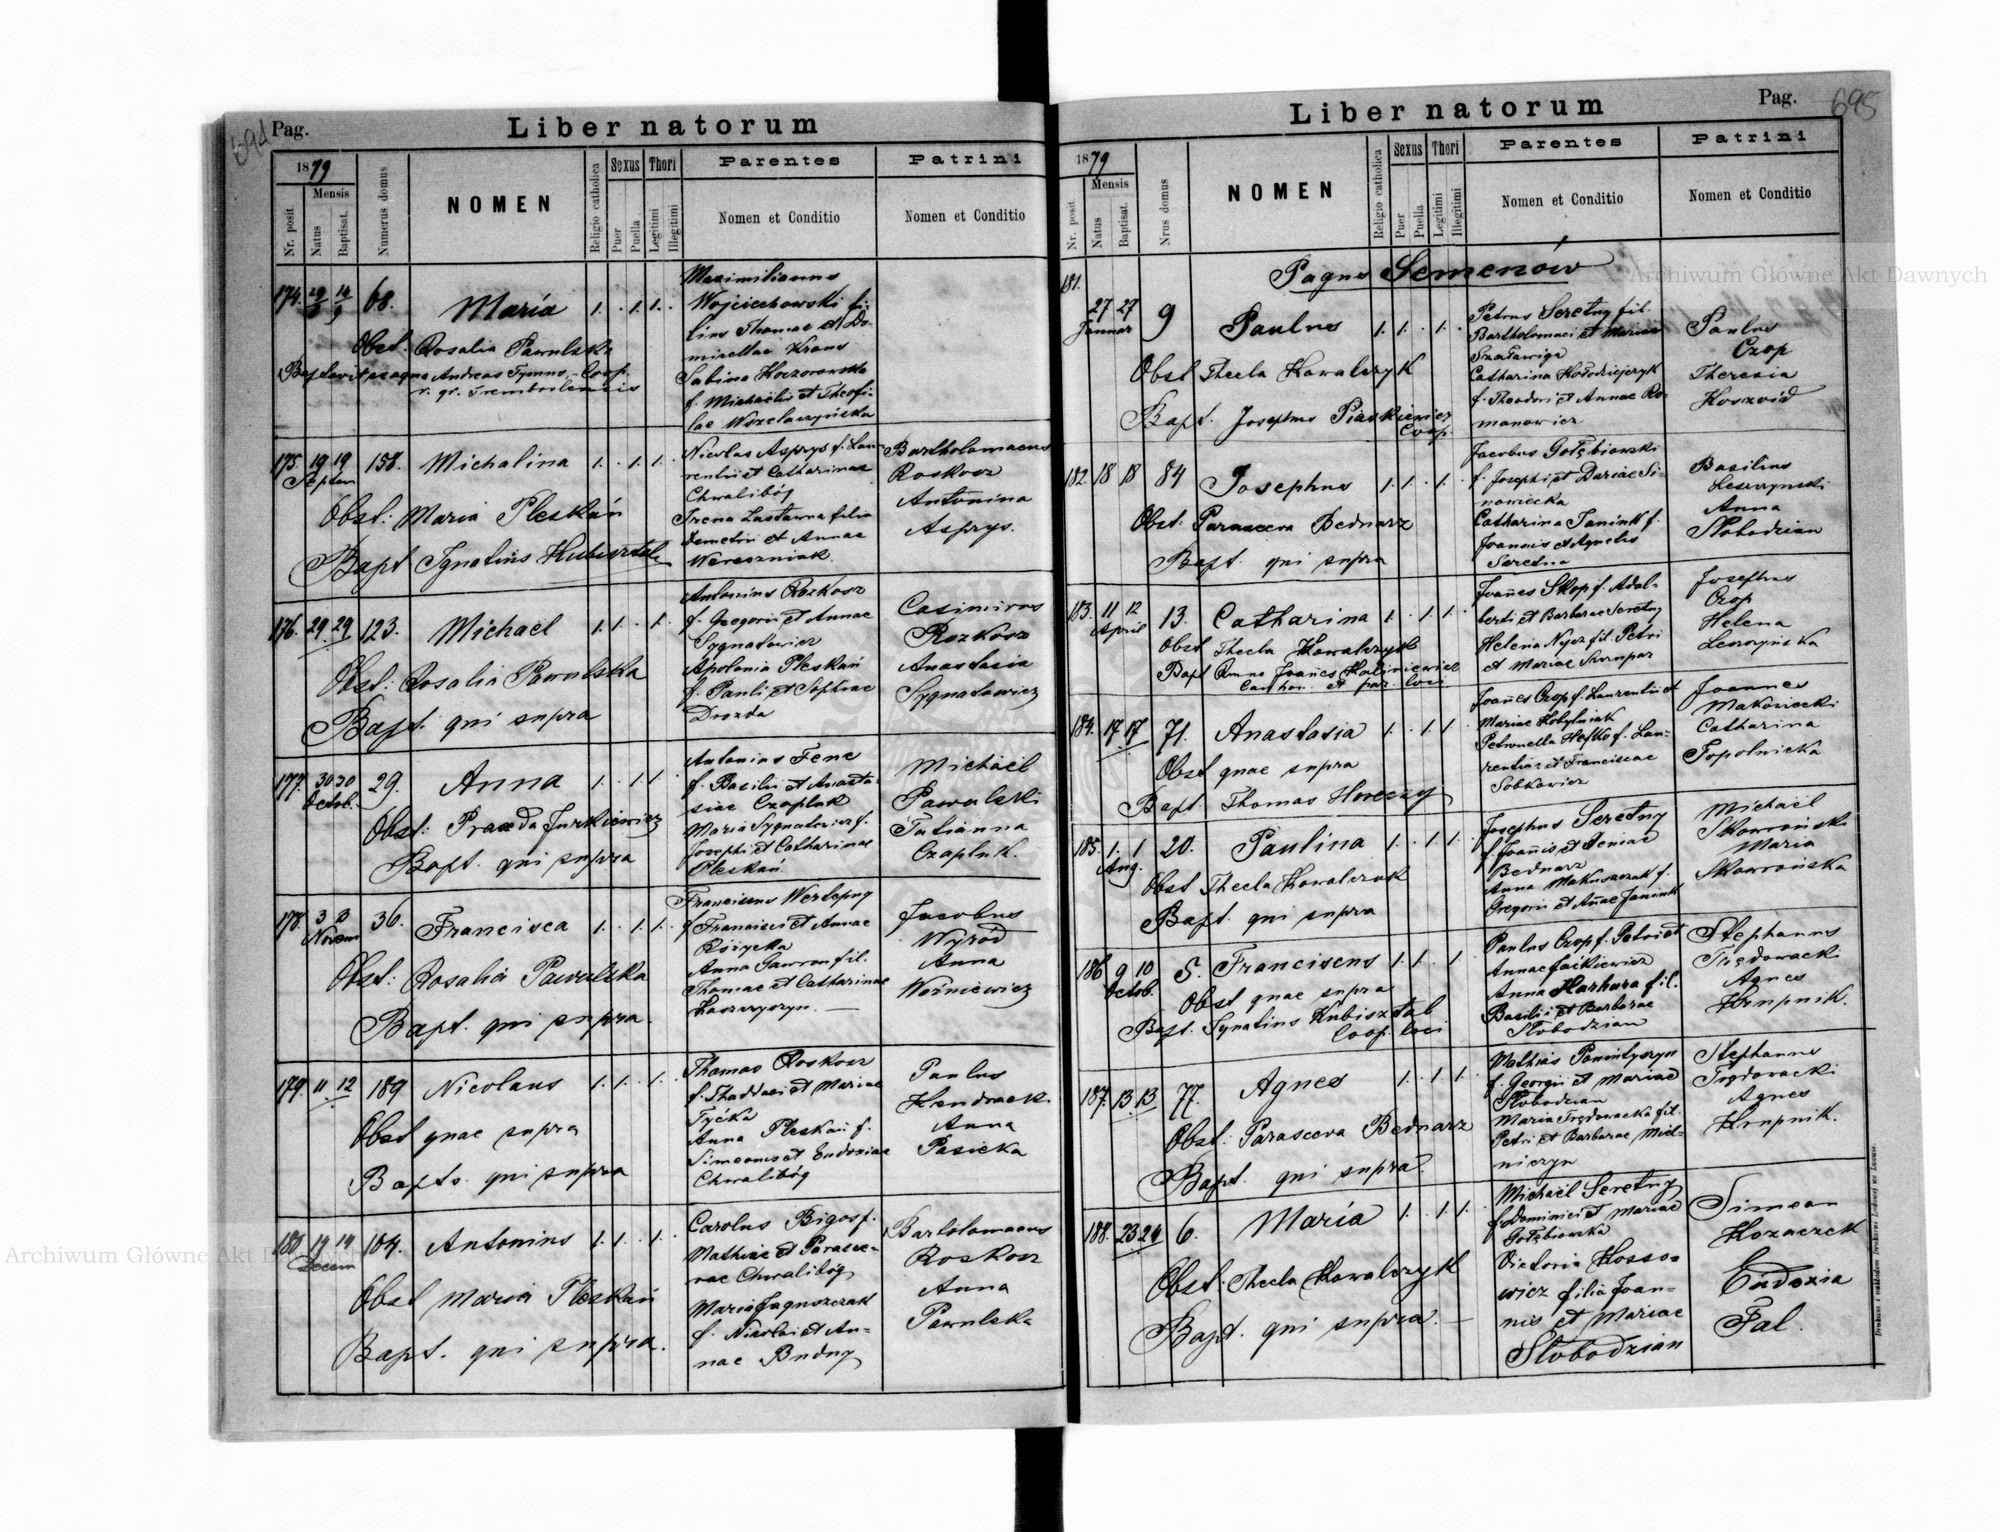 694 Pag.
Liber natorum
1879
Mensis
Nr. posit.
Natus
Baptisat.
Numerus domus
NOMEN
Religio catholica
Sexus
Puer
Puella
Thori
Legitimi
Illegitimi
Parentes
Nomen et Conditio
Patrini
Nomen et Conditio
174. 68. Maria 1. . 1. 1. .
Obst. Rosalia Pawulska
Andreas Tymus - Coop.
r. gr. Trembovlensis
Maximilianus
Wojciechowski fi-
lius Thomae et Do-
micellae Kraus
Sabina Koczorowska
f. Michaelis et Theofi-
lae Wszelaczyńska
175. 19 19 158. Michalina 1. . 1. 1. .
Septem
Obst: Maria Pleskań
Bapt Ignatius Kubisztal
Nicolas Asprys f. Lau-
rentii et Catharinae
Chwalibóg
Irena Lastawna filia
Demetrii et Annae
Wereszniak
Bartholomaeus
Roskosz
Antonina
Asprys.
176. 29 29 123. Michael 1. 1. . 1. .
Obst: Rosalia Pawulska
Bapt. qui supra
Antonius Rozkosz
f. Gregorii et Annae
Sygnatowicz
Apolonia Pleskań
f. Pauli et Sophiae
Drozda
Casimirus
Rozkosz
Anastasia
Sygnatowicz
177. 30 30 29. Anna 1. . 1. 1. .
Octob.
Obst: Praxeda Jurkiewicz
Bapt. qui supra
Antonius Fenc
f. Basilii et Anasta-
siae Czapluk
Maria Sygnatowicz f.
Josephi et Catharinae
Pleskań
Michael
Pawulski
Tatianna
Czapluk.
178. 3 3 36. Francisca 1. . 1. 1. .
Novem
Obst: Rosalia Pawulska
Bapt. qui supra.
Franciscus Wertepny
f. Francisci et Annae
Różycka
Anna Gawron fil.
Thomae et Catharinae
Jacobus
Wyród
Anna
Woźniewicz
179. 11. 12 189 Nicolaus 1. 1. . 1. .
Obst quae supra
Bapts. qui supra
Thomas Roskosz
f. Thaddaei et Mariae
Tyćka
Anna Pleskań f.
Simeonis et Eudoxiae
Chwalibóg
Paulus
Anna
Pasieka
180. 14 14 104. Antonius 1. 1. . 1. .
Decem
Obst Maria Pleskań
Bapt. qui supra.
Carolus Bigos f.
Mathiae et Parasce-
vae Chwalibóg
Maria Jaguszczak
f. Nicolai et An-
nae Budny
Bartolomaeus
Roskosz
Anna
Pawulska
Liber natorum
Pag. 695
1879
Mensis
Nr. posit.
Natus
Baptisat.
Nrus domus
NOMEN
Religio catholica
Sexus
Puer
Puella
Thori
Legitimi
Illegitimi
Parentes
Nomen et Conditio
Patrini
Nomen et Conditio
Pagus Semenów
181.
27 27 9 Paulus 1. 1. . 1. .
Januar
Obst Thecla Kowalczyk
Bapt. Josephus Piaskiewicz
Coop.
Petrus Seretny fil.
Bartholomaei et Mariae
Szaławiga
Catharina Kołodziejczyk
f. Theodori et Annae Ro-
manowicz
Paulus
Czop
Theresia
Koszoid
182. 18 18 84 Josephus 1. 1. . 1. .
Obst: Parasceva Bednarz
Bapt. qui supra
Jacobus Gołębiowski
f. Josephi et Dariae Si-
nowiecka
Catharina Janink f.
Joannis et Agnetis
Seretna
Basilius
Leszczynski
Anna
Słobodzian
183. 11 12 13. Catharina 1. . 1. 1. .
April
Obst Thecla Kowalczyk
Joañes Skop f. Adal-
berti et Barbarae Seretny
Helena Nycz fil. Petri
et Mariae
Josephus
Czop
Helena
Leszczyńska
184. 17 17 71. Anastasia 1. . 1. 1. .
Obst quae supra
Bapt Thomas
Joañes Czop f. Laurentii et
Mariae Kobylniak
Petronella Hefko f. Lau-
rentii et Franciscae
Sobkowicz
Joannes
Makowiecki
Catharina
Topolnicka
185. 1. 1 20. Paulina 1. . 1. 1. .
Aug.
Obst Thecla Kowalczuk
Bapt. qui supra
Josephus Seretny
f. Joañis et
Bednarz
Anna f.
Gregorii et Añae Janink
Michael
Skowroński
Maria
Skowrońska
186 9 10 5. Franciscus 1. 1. . 1. .
Octob.
Obst quae supra
Bapt. Ignatius Kubisztal
Coop. loci
Paulus Czop f. Petri et
Annae Jaćkiewicz
Anna Harhara fil.
Basilii et Barbarae
Słobodzian
Stephanus
Trędowacki
Agnes
Krupnik.
187. 13 13 77. Agnes 1. . 1. 1. .
Obst: Parasceva Bednarz
Bapt. qui supra.
Mathias
f. Georgii et Mariae
Słobodzian
Maria Trędowacka fil.
Petri et Barbarae Miel-
niczyn
Stephanus
Trędowacki
Agnes
Krupnik.
188. 23 24 6. Maria 1. . 1. 1. .
Obst: Thecla Kowalczyk
Bapt. qui supra. —
Michael Seretny
f. Dominici et Mariae
Gołębiowska
Victoria Kosso-
wicz filia Joan-
nis et Mariae
Słobodzian
Simeon
Kozaczek
Eudoxia
Fal.
Archiwum Główne Akt Dawnych
Archiwum Główne Akt Dawnych